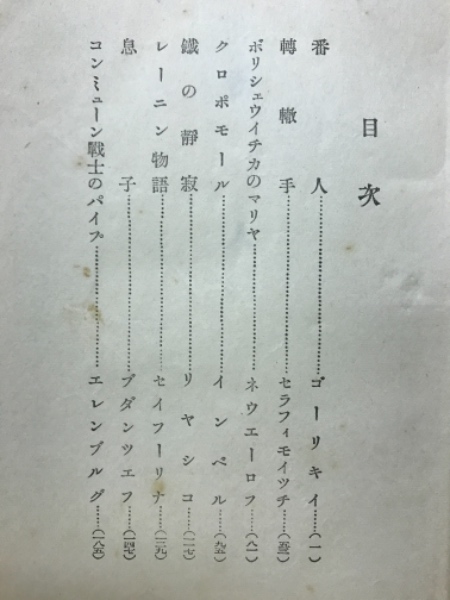 目次
番人……ゴーリキイ……(一)
轉轍手……セラフィモイツチ……(五三)
ボリシェウイチカのマリヤ……ネウエーロフ……(八一)
クロポモール……インベル……(九五)
鐵の靜寂……リヤシコ……(一一七)
レーニン物語……セイフーリナ……(一三九)
息子……ブダンツエフ……(一四七)
コンミューン戰士のパイプ……エレンブルグ……(一八五)